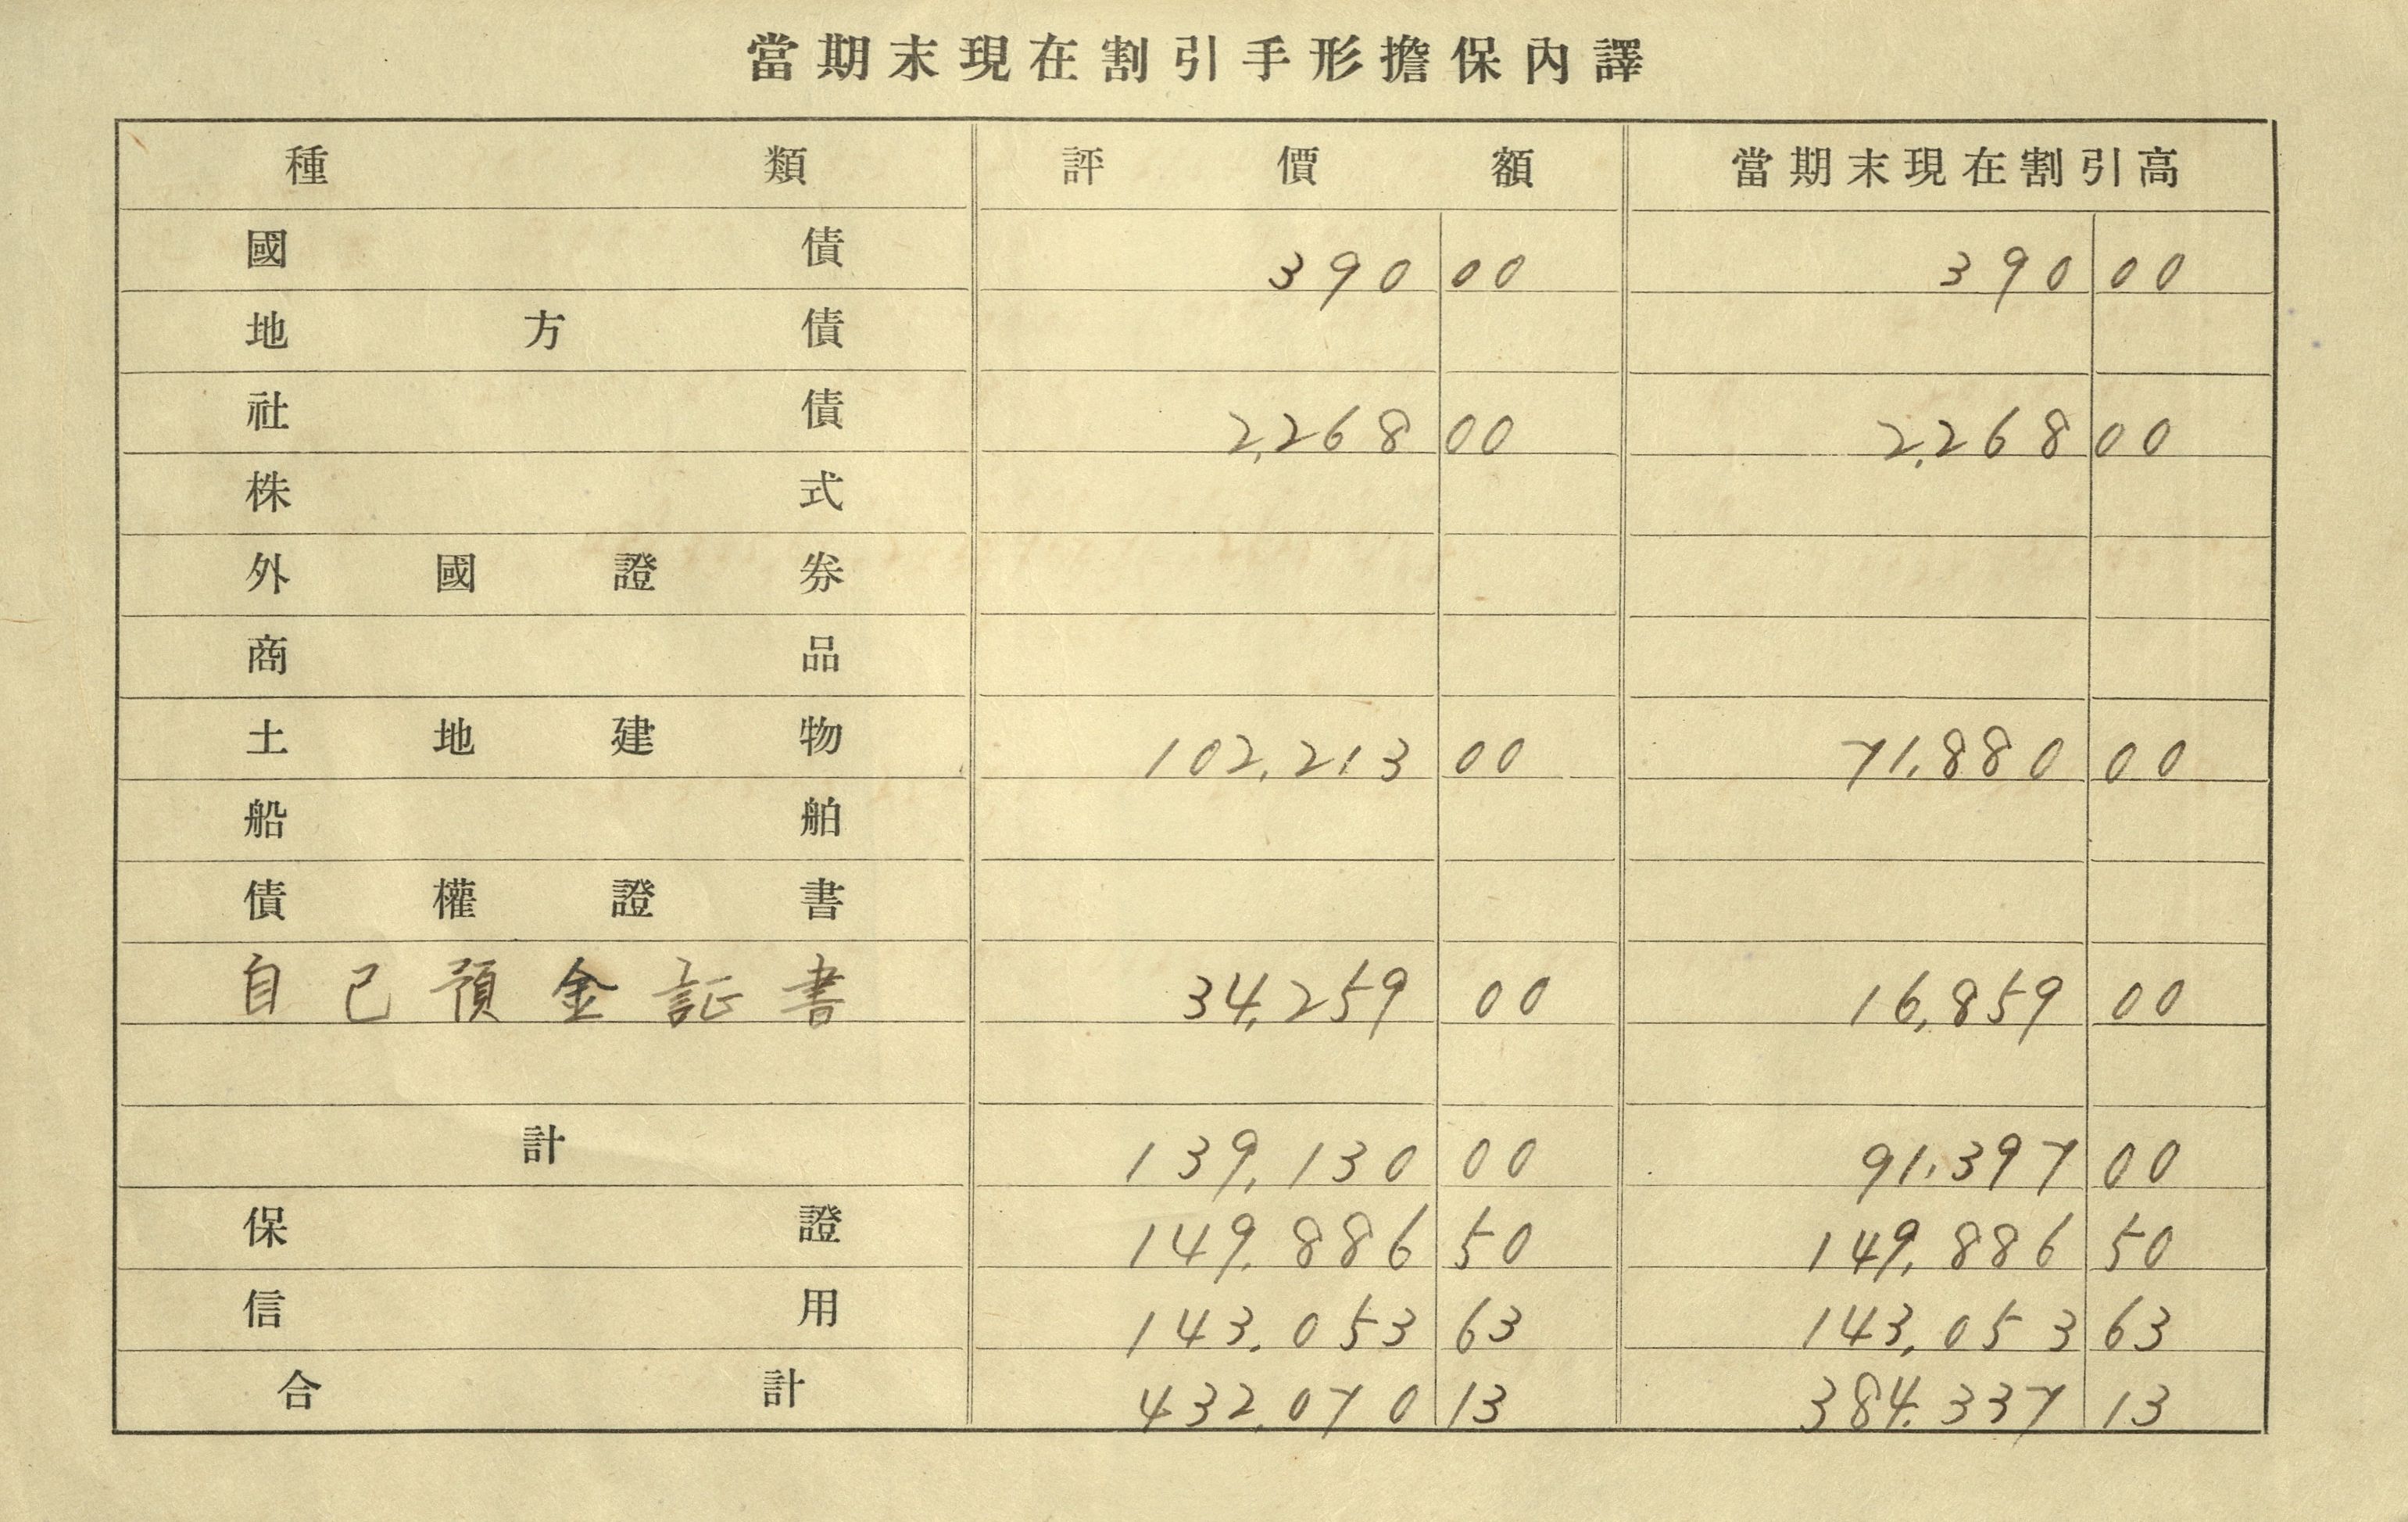 當期末現在割引手形擔保內譯
種類 評價額 當期末現在割引高
國債 390 00 390 00
地方債
社債 2,268 00 2,268 00
株式
外國證券
商品
土地建物 102,213 00 71,880 00
船舶
債權證書
自己預金証書 34,259 00 16,859 00
計 139,130 00 91,397 00
保證 149,886 50 149,886 50
信用 143,053 63 143,053 63
合計 432,070 13 384,337 13